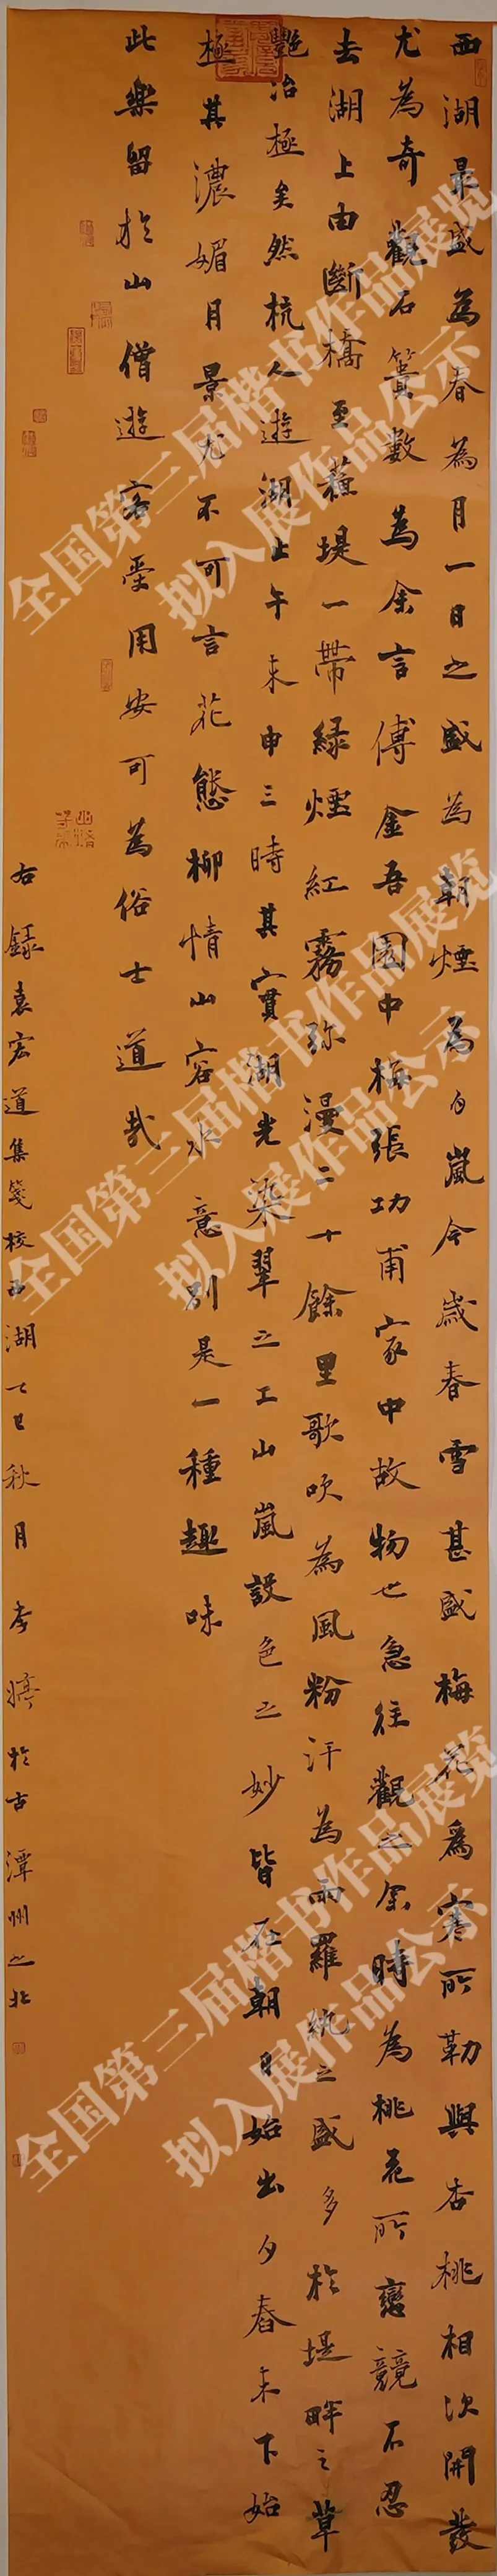 西湖最盛為春為月一日之盛為朝煙為夕嵐今歲春雪甚盛梅花為寒所勒與杏桃相次開發
尤為奇觀石簣數為余言傅金吾園中梅張功甫家中故物也急往觀之余時為桃花所戀競不忍
去湖上由斷橋至蘇堤一帶綠煙紅霧弥漫二十餘里歌吹為風粉汗為雨羅紈之盛多於堤畔之草
艷冶極矣然杭人遊湖止午未申三時其實湖光染翠之工山嵐設色之妙皆在朝日始出夕舂未下始
極其濃媚月景尤不可言花態柳情山容水意別是一種趣味
此樂留於山僧遊客受用安可為俗士道哉
右錄袁宏道集箋校西湖乙巳秋月李婷於古潭州之北
全国第三届楷书作品展览
拟入展作品公示
全国第三届楷书作品展览
拟入展作品公示
全国第三届楷书作品展览
拟入展作品公示